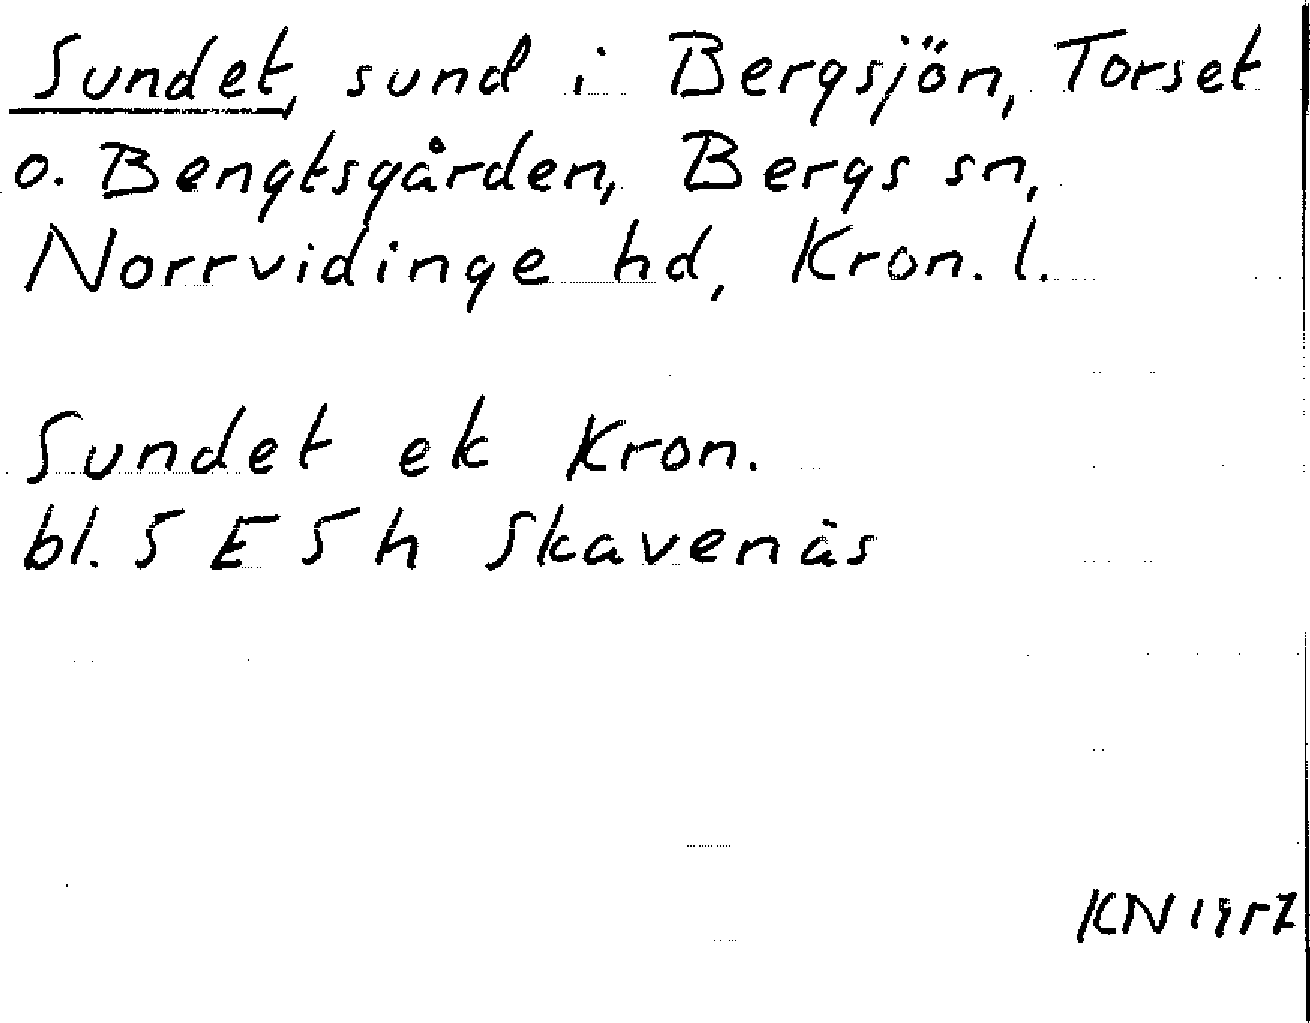 Sundet, sund i Bergsjön, Torset
o. Bengtsgården, Bergs sn,
Norrvidinge hd, Kron. l.
Sundet ek Kron.
bl. 5 E 5 h Skavenäs
KN